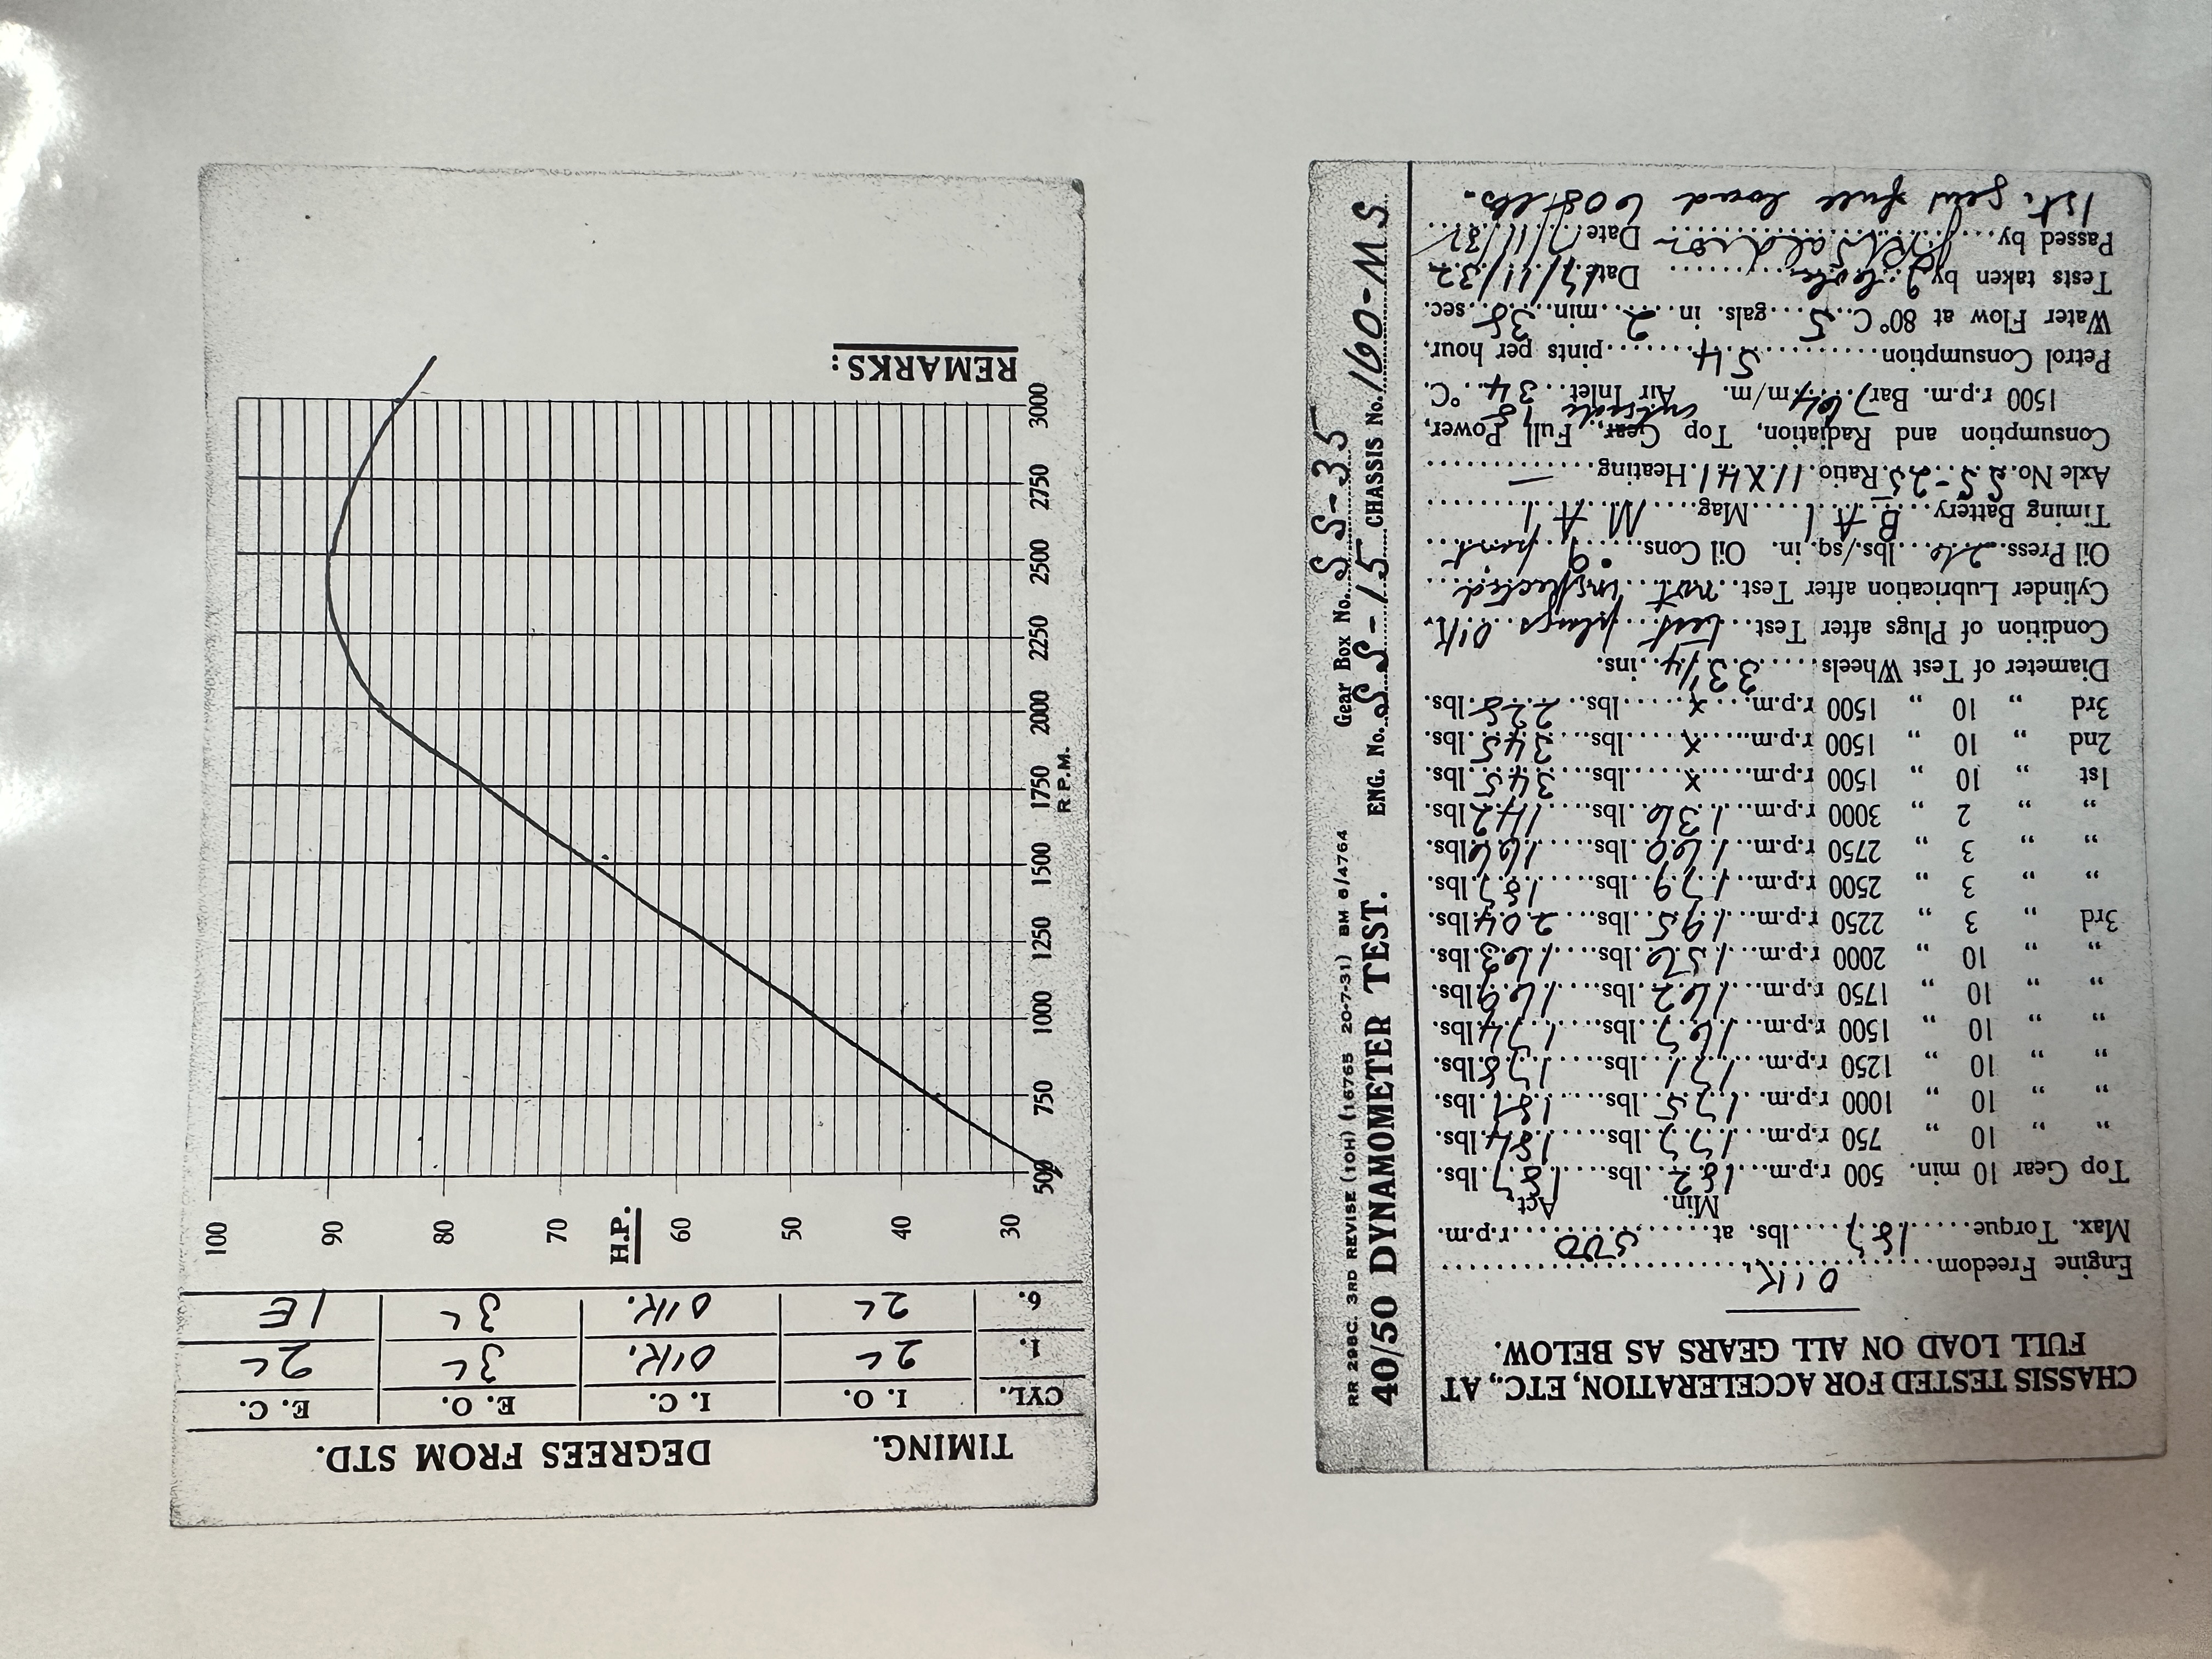 TIMING. DEGREES FROM STD.
CYL. I. O. I. C. E. O. E. C.
1. 2 L O'K. 3 L 2 L
6. 2 L O'K. 3 L 1 E
H.P.
30 40 50 60 70 80 90 100
500
750
1000
1250
1500
1750
2000
2250
2500
2750
3000
R.P.M.
REMARKS:
RR 298C. 3RD REVISE (10H) (16765 20-7-31) BM 6/4764
Gear Box No. S S-35
40/50 DYNAMOMETER TEST. ENG. No. S S-15 CHASSIS No. 160-M S
CHASSIS TESTED FOR ACCELERATION, ETC., AT
FULL LOAD ON ALL GEARS AS BELOW.
Engine Freedom O'K.
Max. Torque 187 lbs. at 500 r.p.m.
Min. Act.
Top Gear 10 min. 500 r.p.m. 182 lbs. 187 lbs.
" " 10 " 750 r.p.m. 177 lbs. 184 lbs.
" " 10 " 1000 r.p.m. 175 lbs. 181 lbs.
" " 10 " 1250 r.p.m. 171 lbs. 178 lbs.
" " 10 " 1500 r.p.m. 167 lbs. 174 lbs.
" " 10 " 1750 r.p.m. 162 lbs. 169 lbs.
" " 10 " 2000 r.p.m. 156 lbs. 163 lbs.
3rd " 3 " 2250 r.p.m. 195 lbs. 204 lbs.
" " 3 " 2500 r.p.m. 179 lbs. 187 lbs.
" " 3 " 2750 r.p.m. 160 lbs. 166 lbs.
" " 2 " 3000 r.p.m. 136 lbs. 142 lbs.
1st " 10 " 1500 r.p.m. x lbs. 345 lbs.
2nd " 10 " 1500 r.p.m. x lbs. 345 lbs.
3rd " 10 " 1500 r.p.m. x lbs. 228 lbs.
Diameter of Test Wheels 33 1/4 ins.
Condition of Plugs after Test test plugs O'K.
Cylinder Lubrication after Test not inspected
Oil Press. 26 lbs./sq. in. Oil Cons. .9 pint
Timing Battery B A 1 Mag. M A 1
Axle No. S S-25 Ratio 11 X 41 Heating —
Consumption and Radiation, Top Gear, Full Power,
outside 18
1500 r.p.m. Bar 764 m/m. Air Inlet 34 °C.
Petrol Consumption 54 pints per hour,
Water Flow at 80° C. 5 gals. in 2 min. 38 sec.
Tests taken by Date 17/11/32
Passed by Date 17/11/32
1st. gear full load 608 lbs.